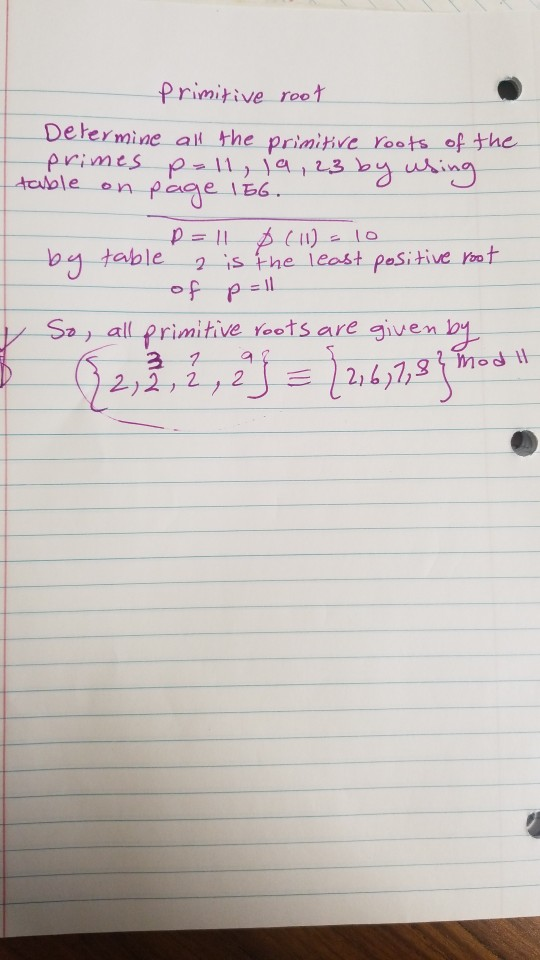 primitive root
Determine all the primitive roots of the
primes p = 11, 19, 23 by using
table on page 156.
p = 11 φ(11) = 10
by table 2 is the least positive root
of p = 11
So, all primitive roots are given by
{2, 2³, 2⁷, 2⁹} ≡ {2,6,7,8} mod 11